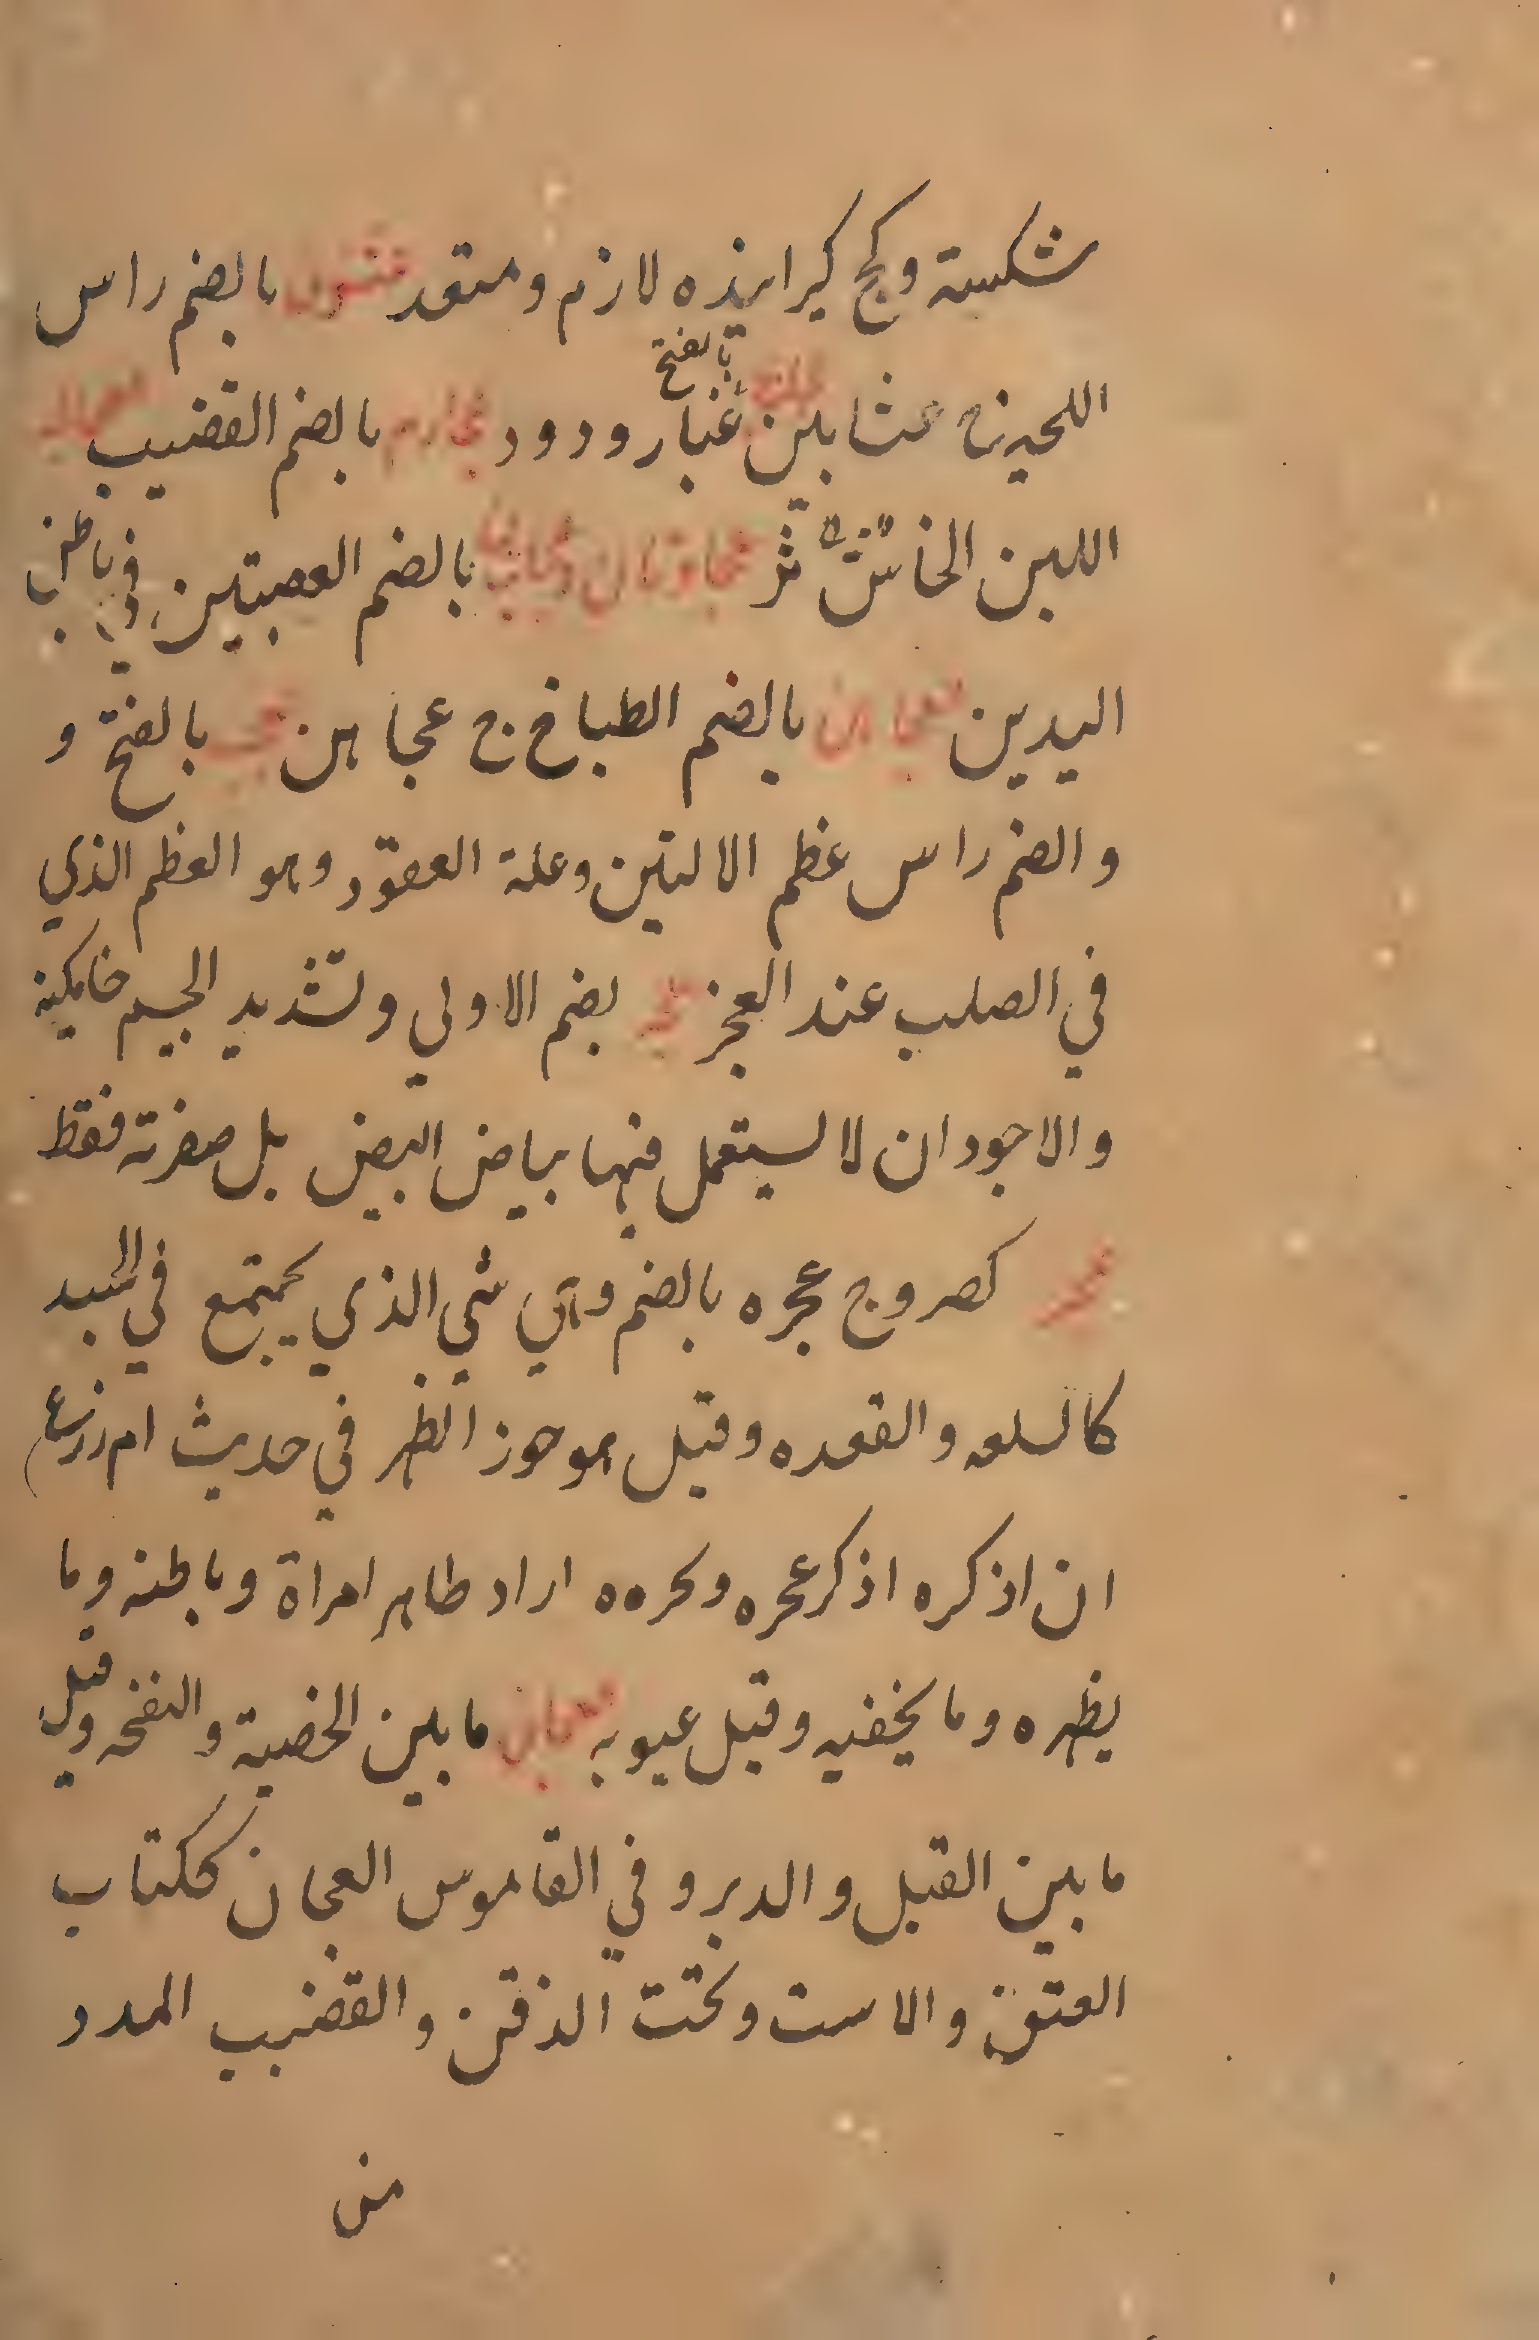 شكسته وكج كيرانيذه لازم ومتعد عثنون بالضم راس
اللحيه ج عثانين عجاج بالفتح غبار ودود عجارم بالضم القضيب عجالد
اللبن الخاثر عجاوتان وعجايتان بالضم العصبتين في باطن
اليدين عجاهن بالضم الطباخ ج عجاهن عجب بالفتح و
والضم راس عظم الاليتين وعلة العقود وهو العظم الذي
في الصلب عند العجز عجه بضم الاولي وتشديد الجيم خايكينه
والاجود ان لا يستعمل فيها بياض البيض بل صفرته فقط
عجر كصرد ج عجره بالضم وهي شي الذي يجتمع في الجسد
كالسلعه والقعده وقيل هو حوز الظهر في حديث ام زرع
ان اذكره اذكر عجره وبجره اراد ظاهر امراة وباطنه وما
يظهره وما يخفيه وقيل عيوبه عجان ما بين الخصية والفقحه وقيل
ما بين القبل والدبر وفي القاموس العجان ككتاب
العنق والاست وتحت الذقن والقضيب الممدد
من